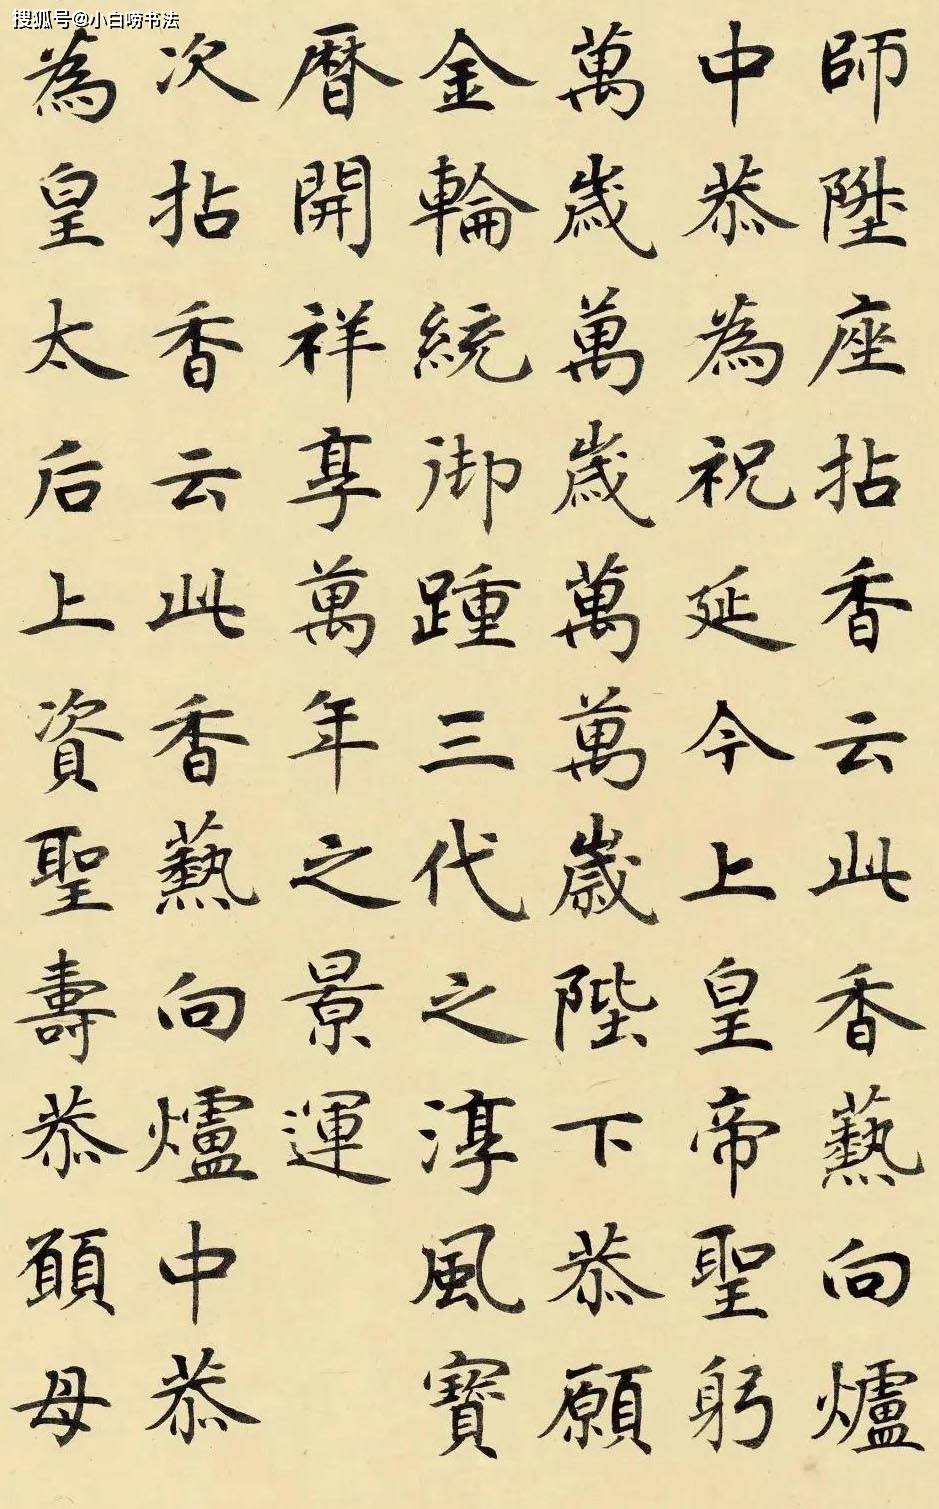 搜狐号@小白唠书法
師陞座拈香云此香爇向爐
中恭為祝延今上皇帝聖躬
萬歲萬歲萬萬歲陛下恭願
金輪統御踵三代之淳風寶
曆開祥享萬年之景運
次拈香云此香爇向爐中恭
為皇太后上資聖壽恭願母